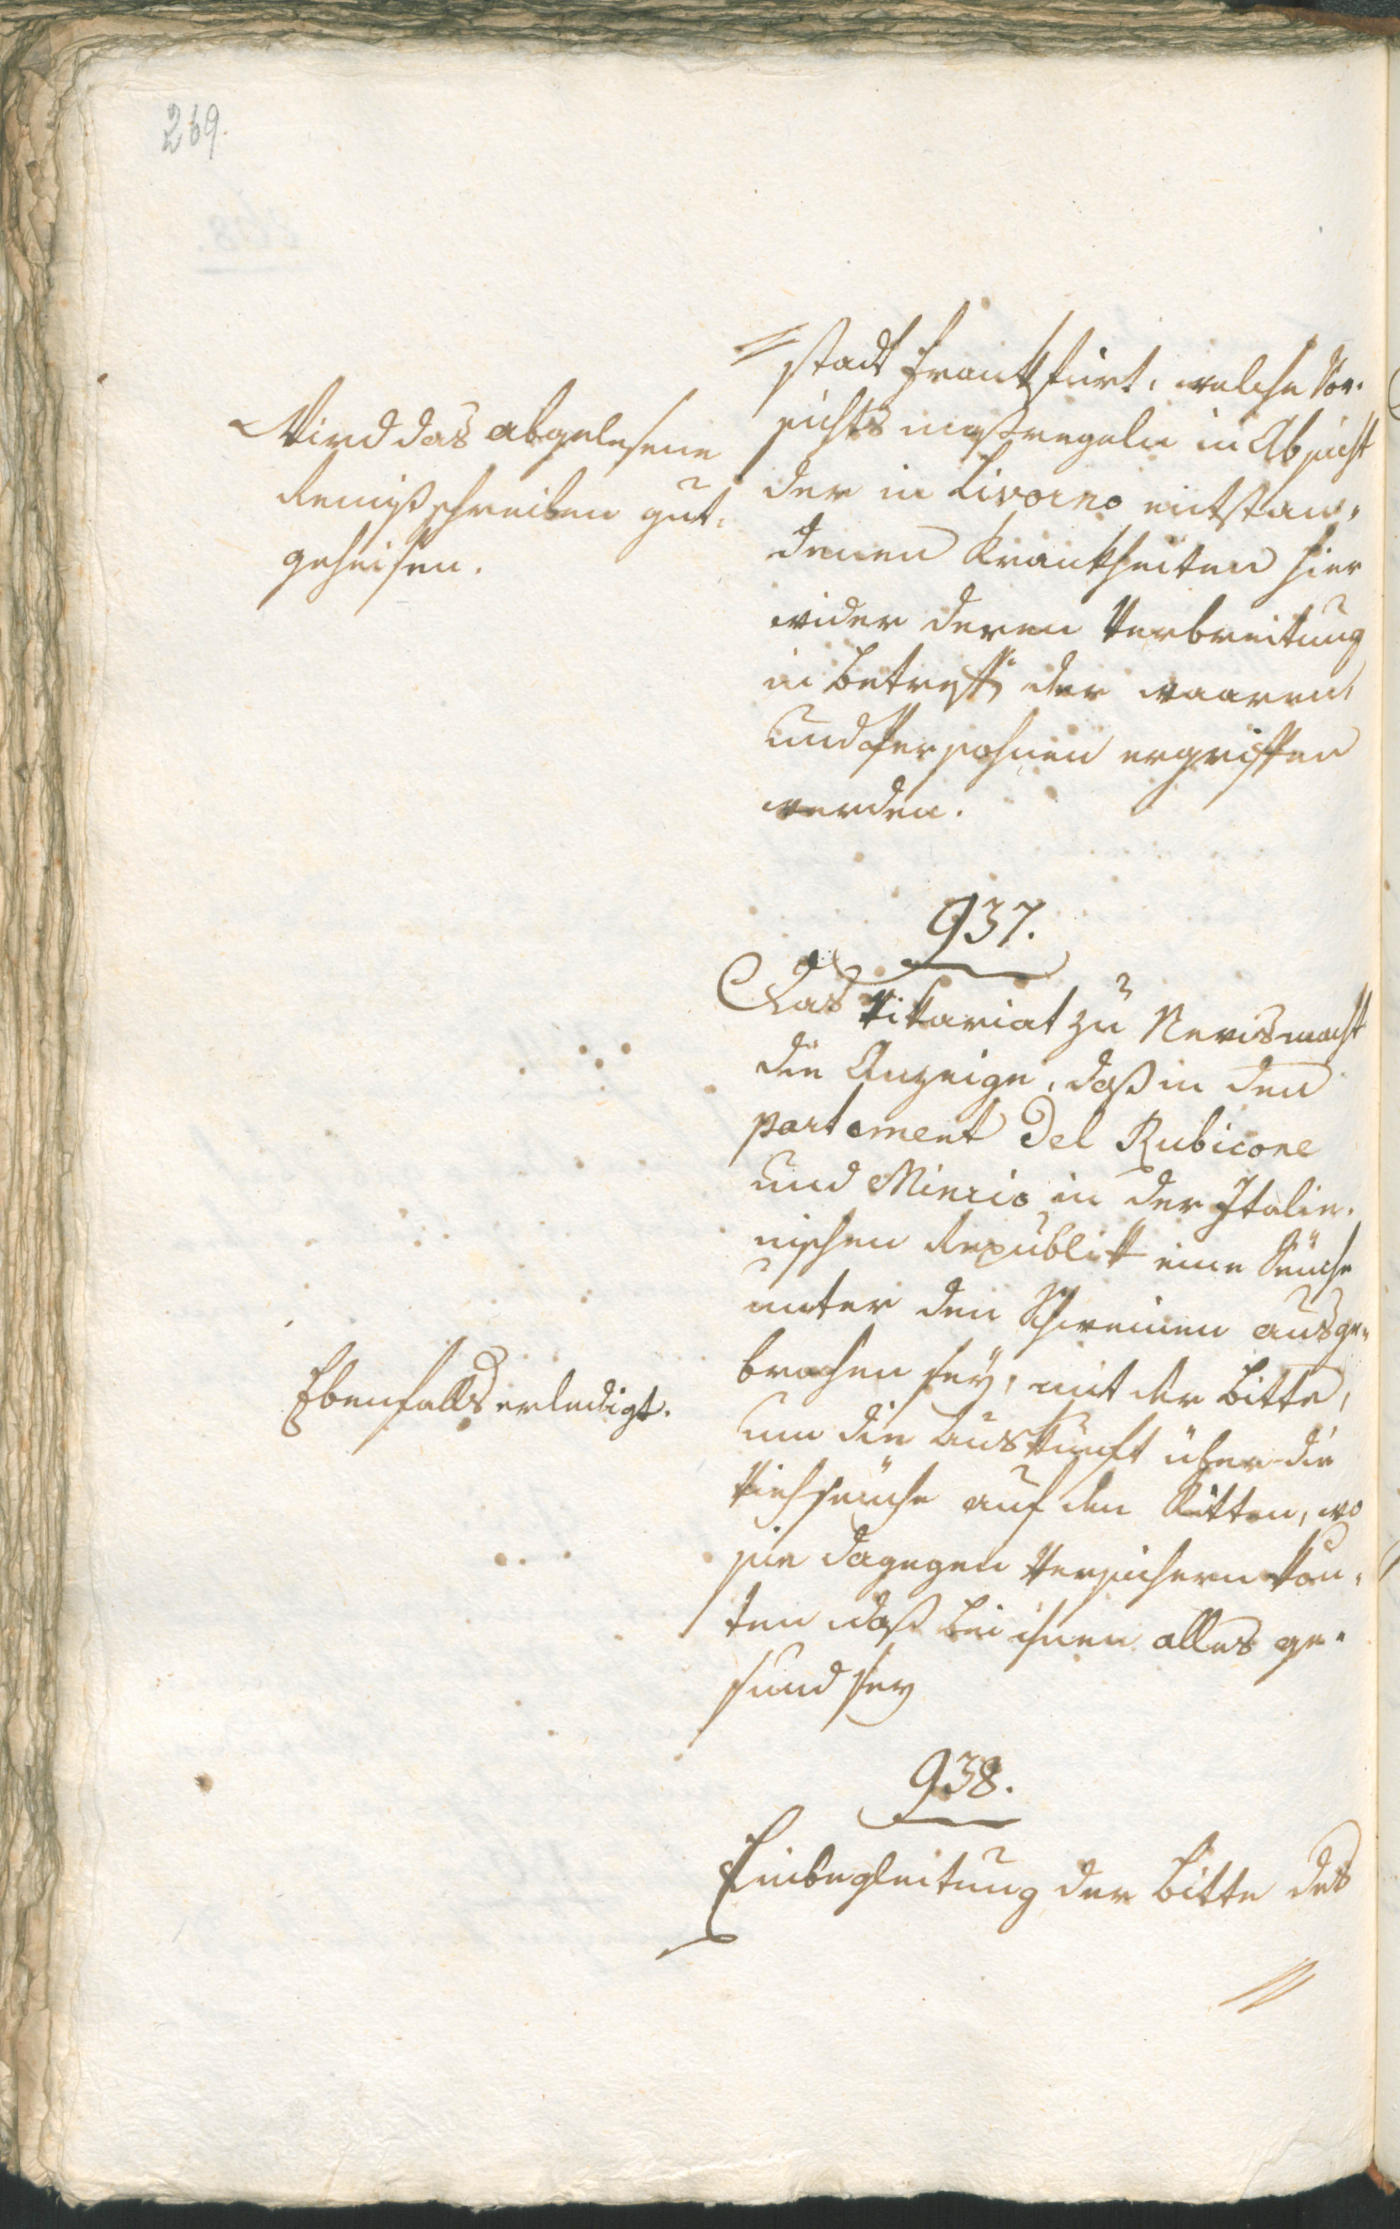 269.
Wird das abgelesene
Remißschreiben gut-
geheisen.
stadt Frankfurt, welche Vor-
sichts maßregeln in Absicht
der in Livorno entstan-
denen Krankheiten hier
wider deren Verbreitung
in Betreff der waaren,
und Persohnen ergriffen
werden.
937.
Das Vikariat zu Neris macht
die Anzeige, daß in den
partement Del Rubicone
und Mincio in der Italie-
nischen Republik eine Seüche
unter den Schweinen ausge-
brochen seÿ, mit der Bitte,
um die Auskunft über die
Viehseüche auf den Ritten, wo
sie dagegen Versichern kön-
ten daß bei ihnen alles ge-
sund sey
Ebenfalls erledigt.
938.
Einbegleitung der Bitte des